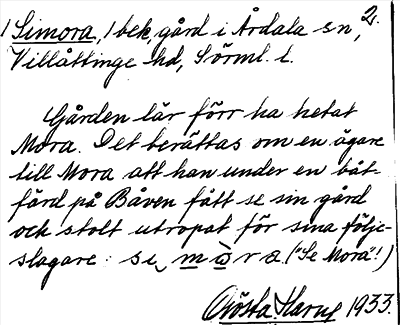 2.
Simora, 1 bek, gård i Årdala sn,
Villåttinge hd, Sörml. l.
Gården lär förr ha hetat
Mora. Det berättas om en ägare
till Mora att han under en båt-
färd på Båven fått se sin gård
och stolt utropat för sina följe-
slagare: se, mòra. ("Se Mora"!)
Gösta 1933.